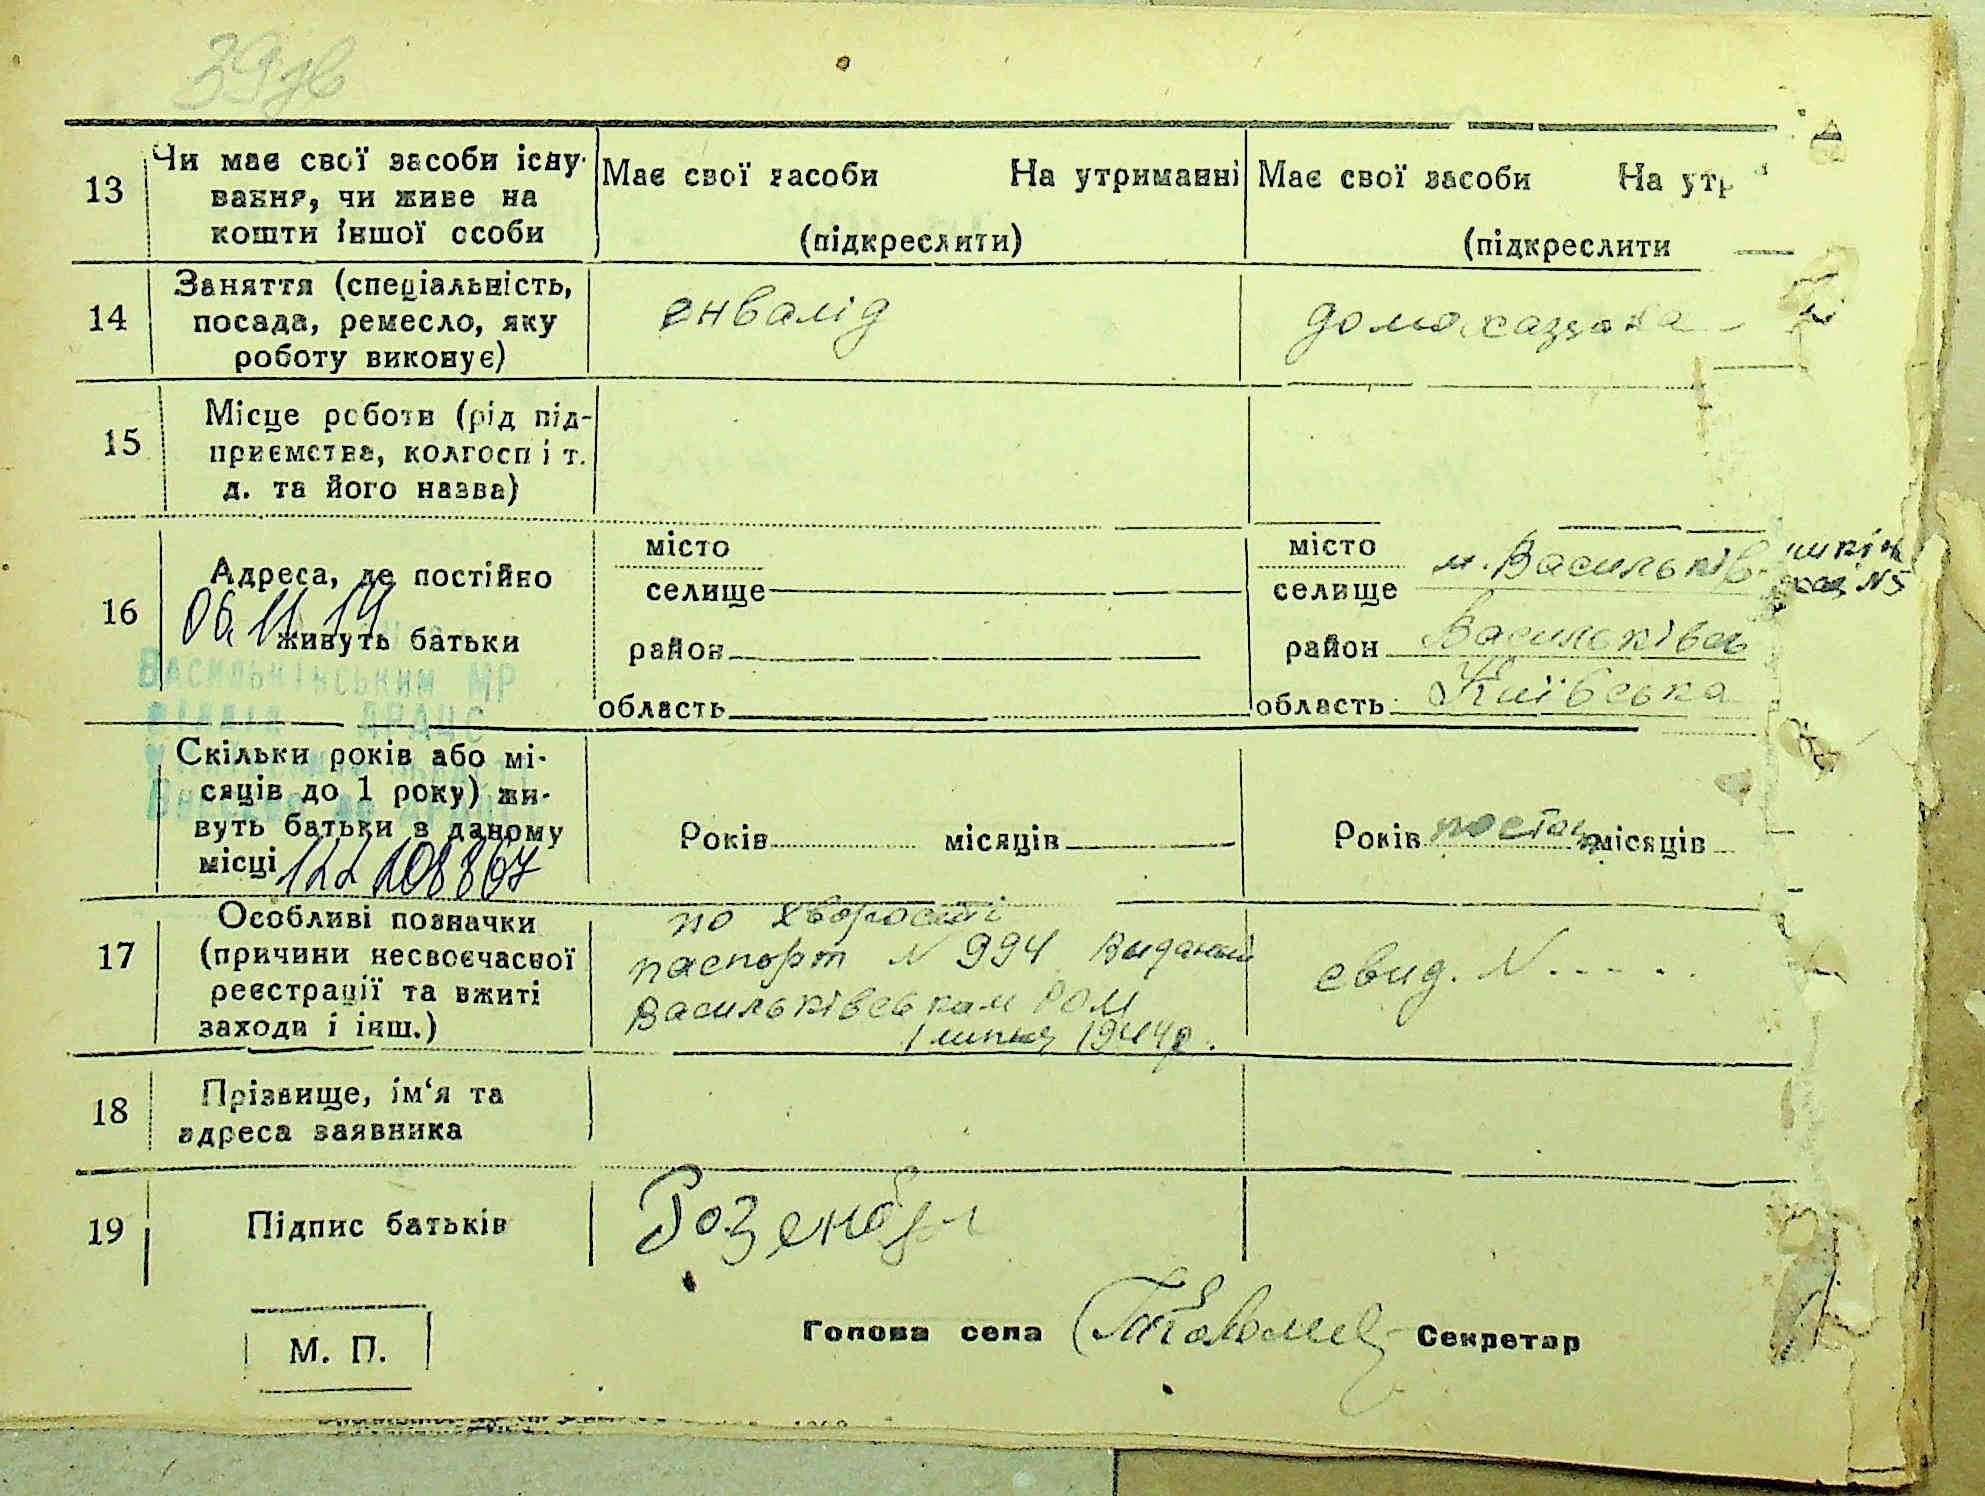 39 зв
13
Чи має свої засоби існу-
вання, чи живе на
кошти іншої особи
Має свої засоби На утриманні
(підкреслити)
Має свої засоби На утр
(підкреслити
14
Заняття (спеціальність,
посада, ремесло, яку
роботу виконує)
енвалід
домохазяйка
15
Місце роботи (рід під-
приємства, колгосп і т.
д. та його назва)
16
Адреса, де постійно
живуть батьки
06.11.14
Васильківським МР
відділ ДРАЦС
місто
селище
район
область
місто
селище м. Васильків
№5
район Васильківсь
область Київська
Скільки років або мі-
сяців до 1 року) жи-
вуть батьки в даному
місці 122 208867
Років місяців
Років постоян місяців
17
Особливі позначки
(причини несвоєчасної
реєстрації та вжиті
заходи і інш.)
по хворості
паспорт N 994 Выданий
Васильківськам РОМ
1 липня 1944 р.
свид. N.....
18
Прізвище, ім'я та
адреса заявника
19
Підпис батьків
М. П.
Голова села
Секретар